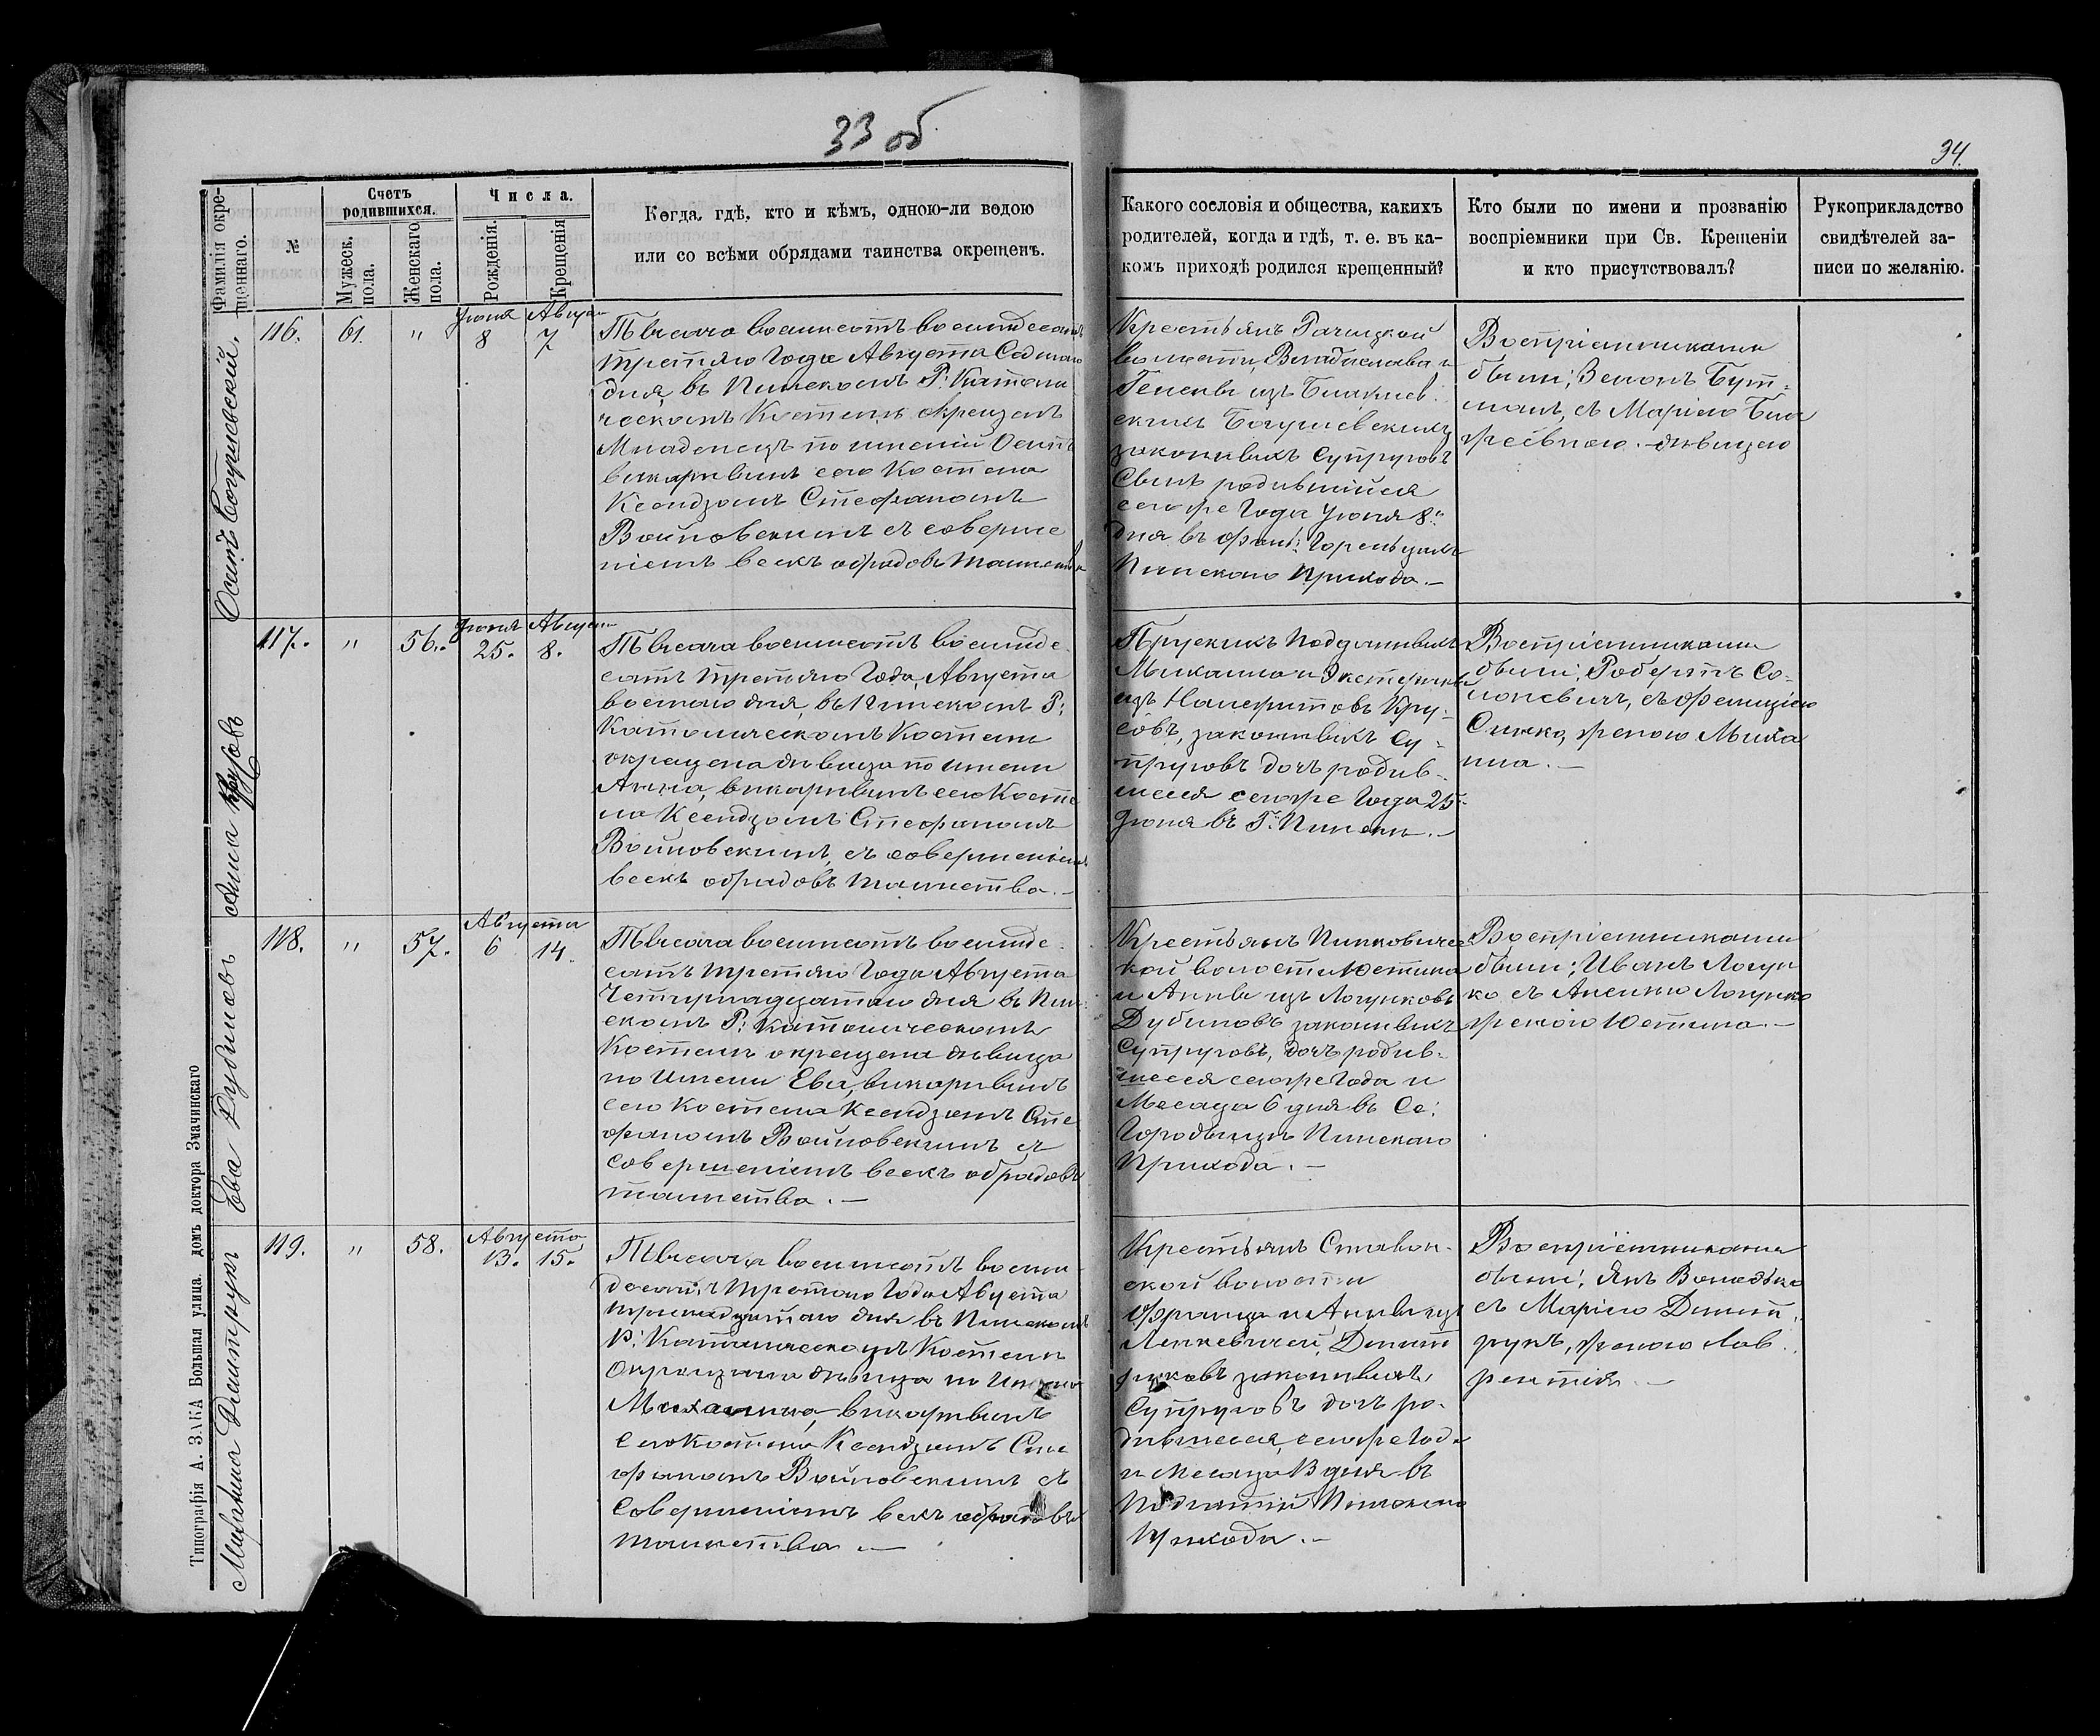 33 об
34.
Фамилія окре-
щеннаго.
№
Счетъ
родившихся.
Мужеск.
пола.
Женскаго
пола.
Числа.
Рожденія.
Крещенія
Когда, гдѣ, кто и кѣмъ, одною-ли водою
или со всѣми обрядами таинства окрещенъ.
Какого сословія и общества, какихъ
родителей, когда и гдѣ, т. е. въ ка-
комъ приходѣ родился крещенный?
Кто были по имени и прозванію
воспріемники при Св. Крещеніи
и кто присутствовалъ?
Рукоприкладство
свидѣтелей за-
писи по желанію.
Осипъ Богушевскій.
116.
61.
"
Іюня
8
Август
7
Тысяча восемьсотъ восемьдесятъ
третьяго Года Августа Седмаго
дня, въ Пинскомъ Р: Католи
ческомъ Костелѣ окрещенъ
Младенецъ по имени Осипъ
викарнымъ сего Костела
Ксендзомъ Стефаномъ
Войновскимъ съ соверше
ніемъ всехъ обрядовъ таинства
Крестьянъ
волости, Владислава и
Елены изъ
скихъ Богушевскихъ
законныхъ Супруговъ
Сынъ родившійся
сегоже Года Іюня 8го
дня въ фол:
Пинскаго Прихода. –
Воспріемниками
были; Зенонъ Бут-
съ Маріею
девицею
Анна Крусовъ
117.
"
56.
Іюня
25.
Август
8.
Тысяча восемьсотъ восемьде-
сятъ третьяго Года, Августа
восмаго дня, въ Пинскомъ Р:
Католическомъ Костелѣ
окрещена дѣвица по имени
Анна, викарнымъ сего Косте
ла Ксендзомъ Стефаномъ
Войновскимъ, съ совершеніемъ
всехъ обрядовъ таинства. –
Прускихъ Подданныхъ
Михаила и
изъ Кру-
совъ, законныхъ Су-
пруговъ дочь родив-
шеяся сегоже Года 25
Іюня въ Г: Пинскѣ. –
Воспріемниками
были; Робертъ Со-
лоневичъ, съ Фелиціею
Синко, женою Миха
ила. –
Ева Дубиновъ
118.
"
57.
Августа
6
14.
Тысяча восемьсотъ восемьде-
сятъ третьяго Года Августа
Четырнадцатаго дня въ Пин-
скомъ Р: Католическомъ
Костелѣ окрещена дѣвица
по Имени Ева, викарнымъ
сего Костела Ксендзомъ Сте
фаномъ Войновскимъ съ
Совершеніемъ всехъ обрядовъ
таинства. –
Крестьянъ Пинковичес
кой волости Юстина
и Анны изъ Логунковъ
Дубиновъ законныхъ
Супруговъ, дочь родив-
шеяся сегоже Года и
Месяца 6 дня въ Се:
Городищѣ Пинскаго
Прихода. –
Воспріемниками
были; Иванъ Логун
ко съ Логунко
женою Юстина. –
Михалина Дмитрукъ
119.
"
58.
Августа
13.
15.
Тысяча восемьсотъ восемь
десятъ третьяго Года Августа
дня въ Пинскомъ
Р: Католическомъ Костелѣ
Окрещена дѣвица по Имени
Михалина, викарнымъ
сего Костела Ксендзомъ Сте
фаномъ Войновскимъ съ
Совершеніемъ всехъ обрядовъ
таинства. –
Крестьянъ Ставок-
ской волости
Франца и Анны изъ
Дмит
руковъ законныхъ
Супруговъ дочь ро-
дившеяся, сегоже Года
и Месяца 13 дня въ
Пинскаго
Прихода. –
Воспріемниками
были; Янъ
съ Маріею Дмит
рукъ, женою Лав
рентія –
Типографія А. ЗАКА Большая улица. домъ доктора Змачинскаго